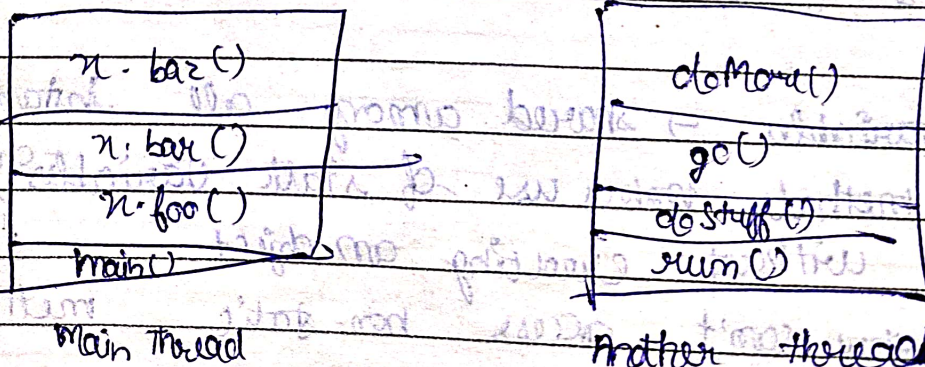 x. baz()
x. bar()
x. foo()
main()
Main Thread
doMore()
go()
doStuff()
run()
Another thread